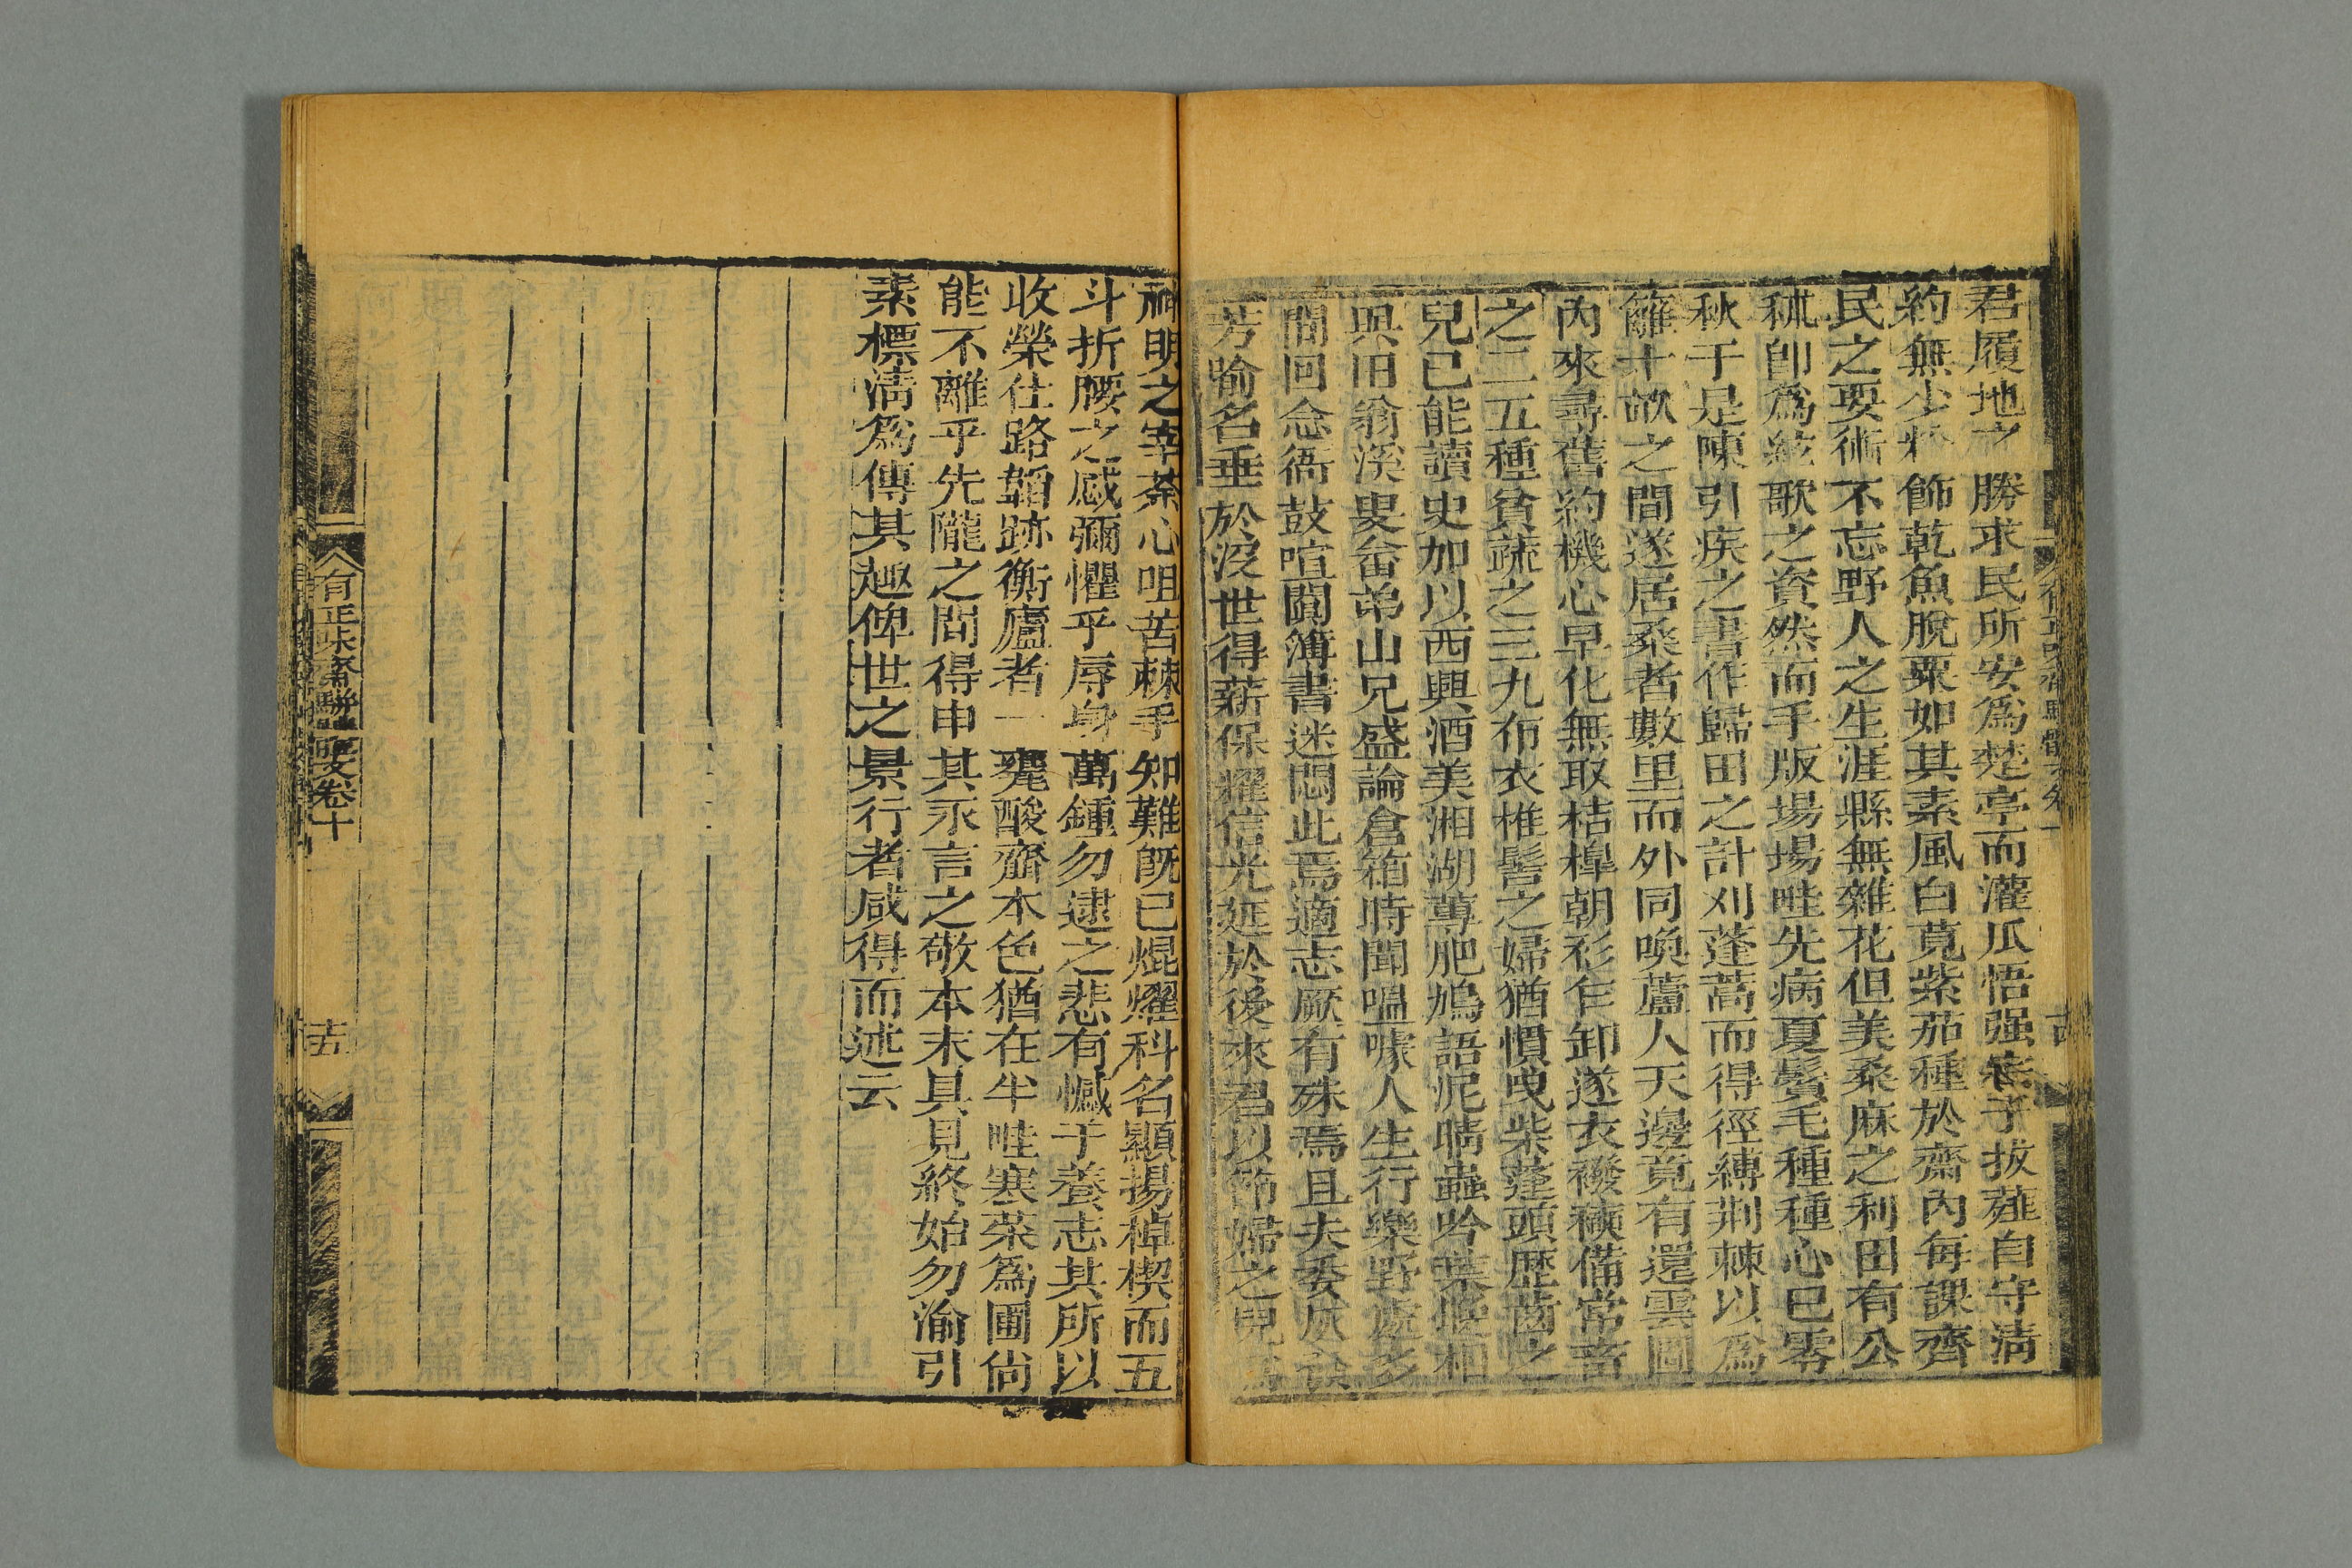 君履地之勝求民所安為楚亭而灌瓜悟强宗子拔薤自守清
約無少粉飾乾魚脫粟如其素風白莧紫茄種於齋內每課齊
民之要術不忘野人之生涯縣無雜花但美桑麻之利田有公
秫卽為絃歌之資然而手版場場畦先病夏鬢毛種種心已零
秋于是陳引疾之書作歸田之計刈蓬蒿而得徑縛荆棘以為
籬十畝之間遂居桑者數里而外同喚蘆人天邊竟有還雲圖
內來尋舊約機心早化無取桔槹朝衫乍卸遂衣襏襫備常畜
之二五種貧蔬之三九布衣椎髻之婦猶慣曳柴蓬頭歷齒之
兒已能讀史加以西興酒美湘湖蓴肥鳩語泥晴蟲吟葉暖相
與旧翁溪叟畬弟山兄盛論倉箱時聞嗢噱人生行樂野處多
間回念衙鼓喧闐簿書迷悶此焉適志厥有殊焉且夫委
芳喻名垂於沒世得薪保耀信光延於後來君以節婦之兒為
神明之宰荼心咀苦棘手知難旣已焜燿科名顯揚棹楔而五
斗折腰之感彌懼乎辱身萬鍾勿逮之悲有憾于養志其所以
收榮仕路韜跡衡廬者一甕酸齏本色猶在半畦寒菜為圃尙
能不離乎先隴之間得申其永言之敬本末具見終始勿渝引
素標淸為傳其趣俾世之景行者咸得而述云
有正味齋駢體文卷十
十五